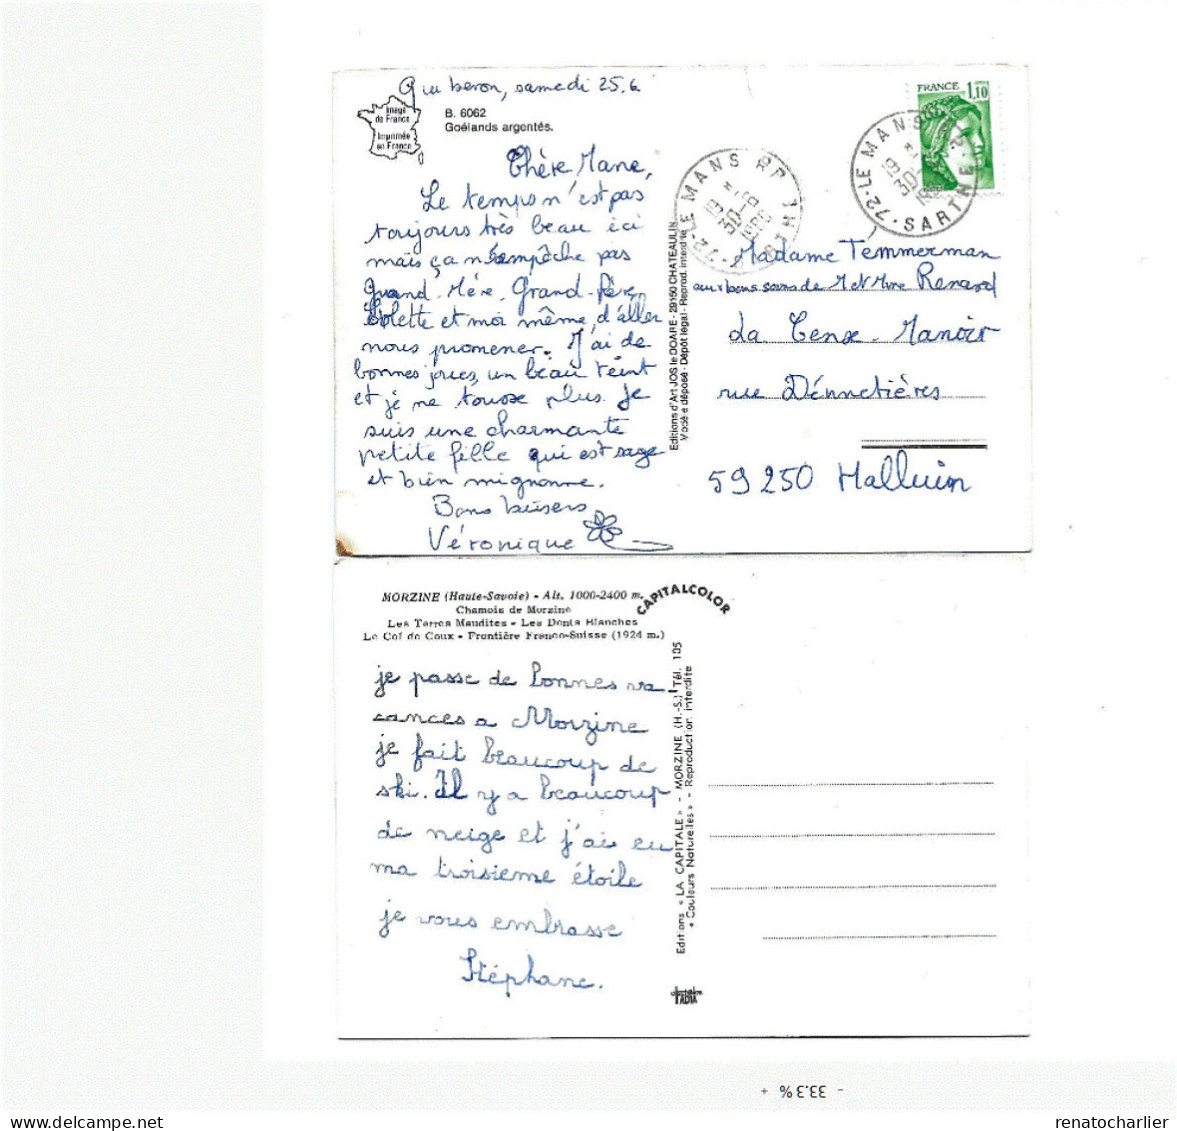 Quiberon, samedi 25.6
Image
de France
Imprimée
en France
B. 6062
Goélands argentés.
Chère Mane,
Le temps n'est pas
toujours très beau ici
mais ça n'empêche pas
Grand-Mère, Grand-Père,
Colette et moi même, d'aller
nous promener. J'ai de
bonnes joues, un beau teint
et je ne tousse plus. Je
suis une charmante
petite fille qui est sage
et bien mignonne.
Bons baisers
Véronique
Editions d'Art JOS le DOARE - 29150 CHATEAULIN
Modèle déposé - Dépôt légal - Reprod. interdite
72-LE MANS RP
19 H
30-6
1980
FRANCE
1,10
72-LE MANS
19 H
30-6
SARTHE
Madame Temmerman
aux bons soins de M et Mme Renard
La Cense-Manoir
rue
59250 Halluin
MORZINE (Haute-Savoie) - Alt. 1000-2400 m.
Chamois de Morzine
Les Terres Maudites - Les Dents Blanches
Le Col de Coux - Frontière Franco-Suisse (1924 m.)
CAPITALCOLOR
je passe de bonnes va-
cances a Morzine
je fait beaucoup de
ski. Il y a beaucoup
de neige et j'ai eu
ma troisieme étoile
je vous embrasse
Stéphane.
Editions « LA CAPITALE » - MORZINE (H.-S.) Tél. 105
« Couleurs Naturelles » - Reproduction interdite
- 33.3% +
renatocharlier